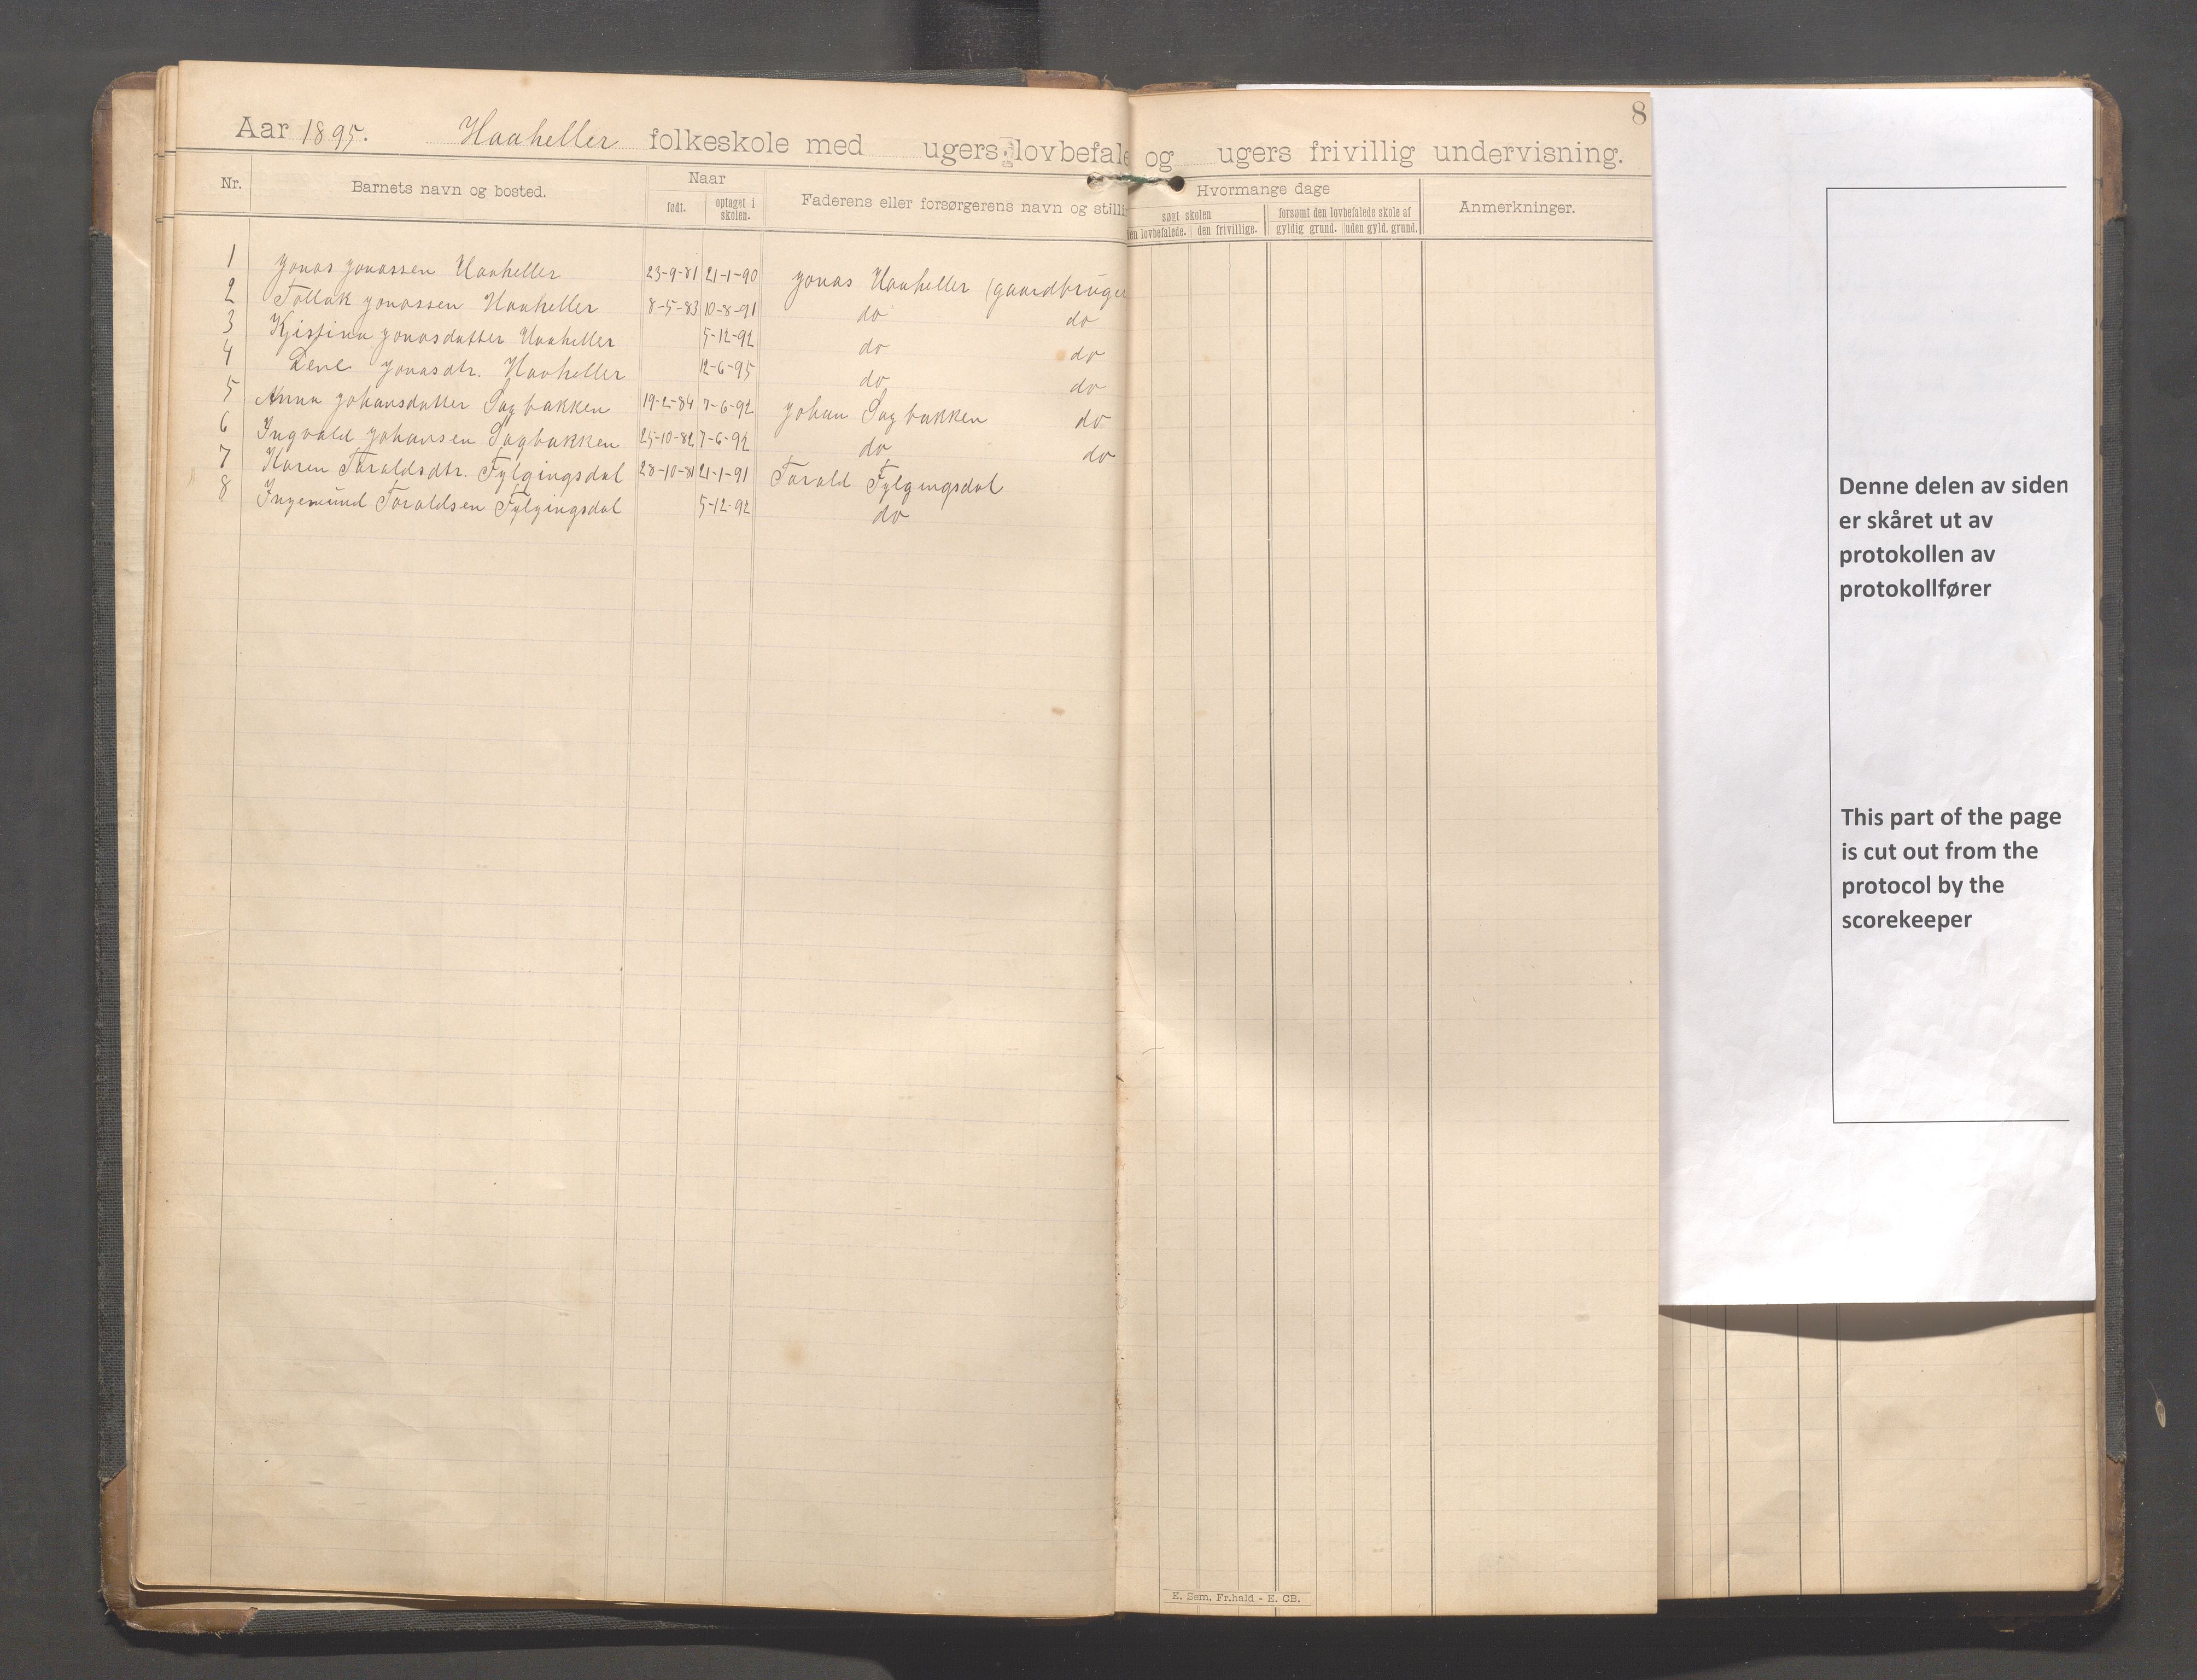 8
Aar 1895. Haaheller folkeskole med ugers lovbefale og ugers frivillig undervisning.
Nr. Barnets navn og bosted. Naar Faderens eller forsørgerens navn og stilli Hvormange dage Anmerkninger.
født. optaget i skolen. søgt skolen forsømt den lovbefalede skole af
en lovbefalede. den frivillige. gyldig grund. uden gyld. grund.
1 Jonas Jonassen Haaheller 23-9-81 21-1-90 Jonas Haaheller (gaardbruger
2 Tollak Jonassen Haaheller 8-5-83 10-8-91 do do
3 Jonasdatter Haaheller 5-12-92 do do
4 Lene Jonasdtr. Haaheller 12-6-95 do do
5 Anna Johansdatter Sagbakken 19-2-84 7-6-92 Johan Sagbakken do
6 Ingvald Johansen Sagbakken 25-10-82 7-6-92 do do
7 Karen Taraldsdtr. Fylgingsdal 28-10-81 21-1-91 Tarald Fylgingsdal
8 Ingemund Taraldsen Fylgingsdal 5-12-92 do
E. Sem, Fr.hald - E. CB.
Denne delen av siden
er skåret ut av
protokollen av
protokollfører
This part of the page
is cut out from the
protocol by the
scorekeeper